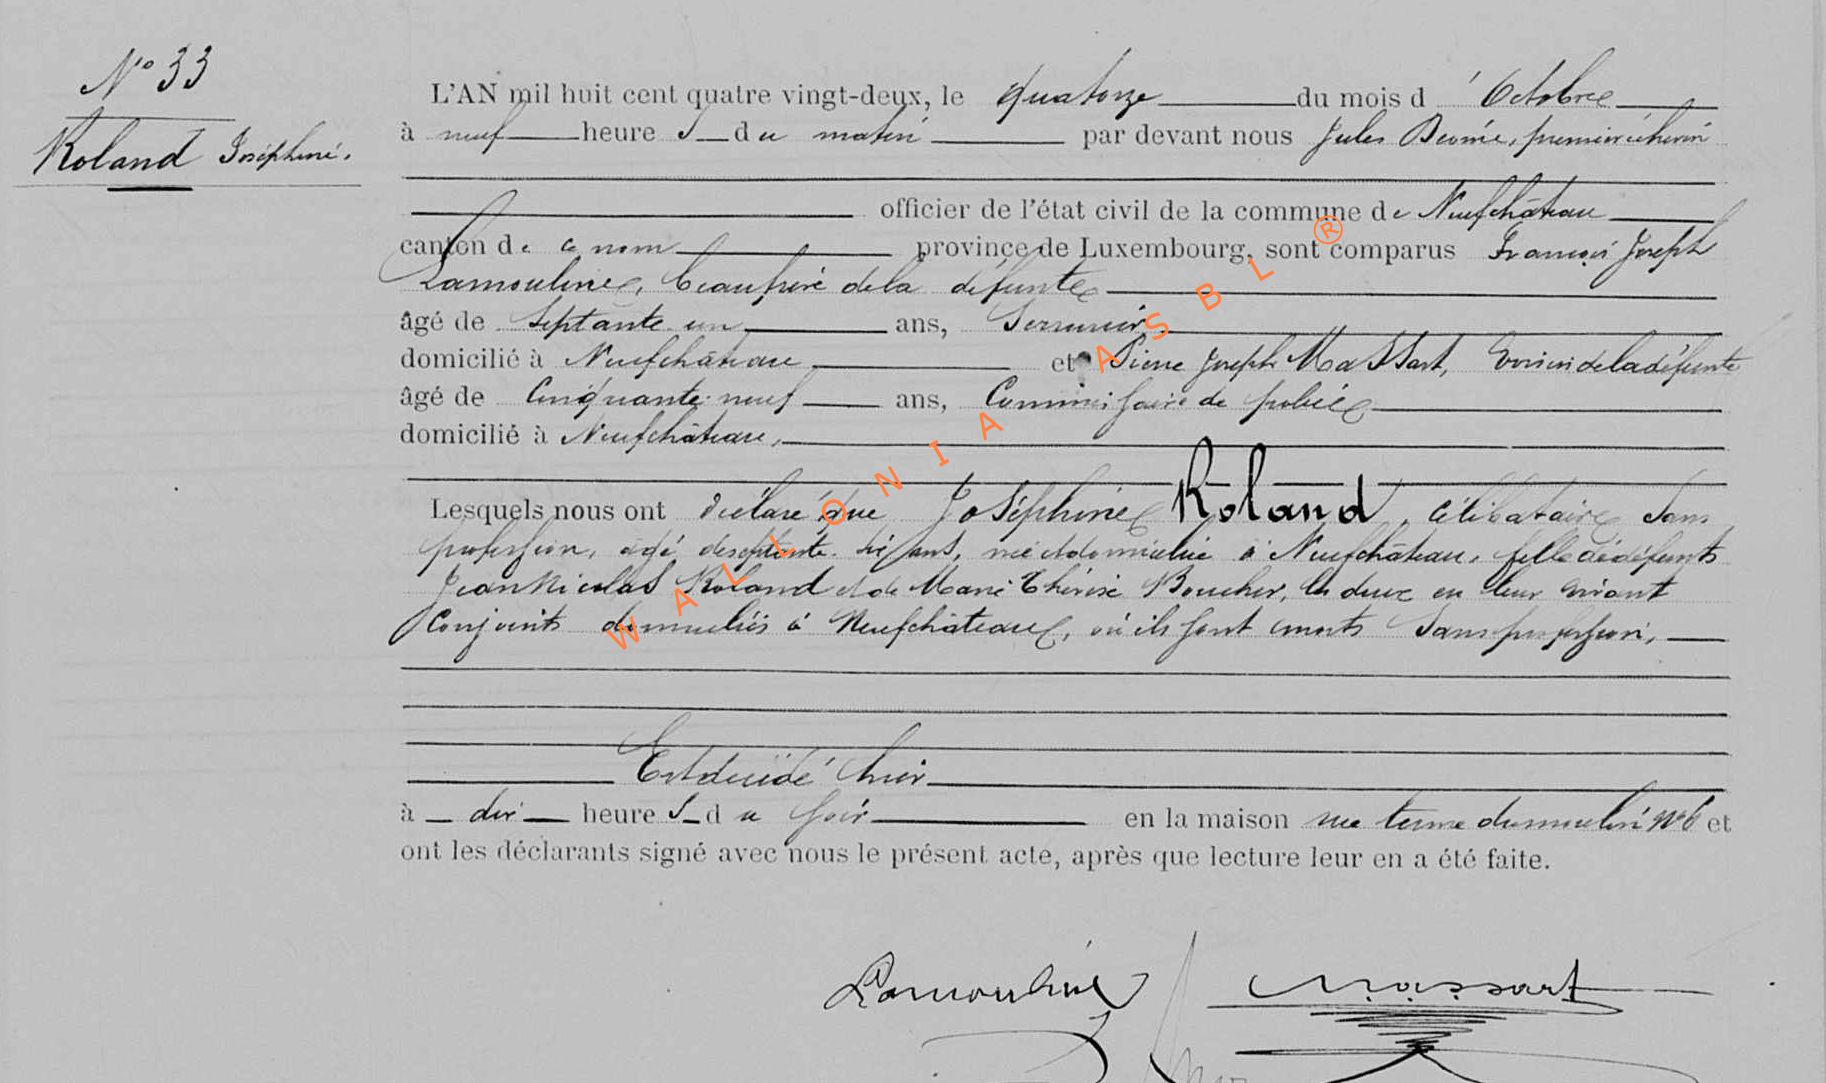 N° 33
Roland Joséphine.
L'AN mil huit cent quatre vingt-deux, le quatorze du mois d'Octobre
à neuf heure s du matin par devant nous Jules premier échevin
officier de l'état civil de la commune de Neufchâteau
canton de ce nom province de Luxembourg, sont comparus François Joseph
Lamouline, beaufrère de la défunte
âgé de Septante un ans, Serrurier
domicilié à Neufchâteau et Pierre Joseph Massart, voisin de la défunte
âgé de Cinquante neuf ans, Commissaire de police
domicilié à Neufchâteau,
Lesquels nous ont déclaré que Joséphine Roland, célibataire sans
profession, âgé de septante six ans, née et domiciliée à Neufchâteau, fille de défunts
Jean Nicolas Roland et de Marie Thérèse Boucher, les deux en leur vivant
Conjoints domiciliés à Neufchâteau, où ils sont morts sans profession,
Est décédé hier
à dix heure s du soir en la maison rue terme du moulin N° 6 et
ont les déclarants signé avec nous le présent acte, après que lecture leur en a été faite.
Lamouline Massart
WALLONIA ASBL ®